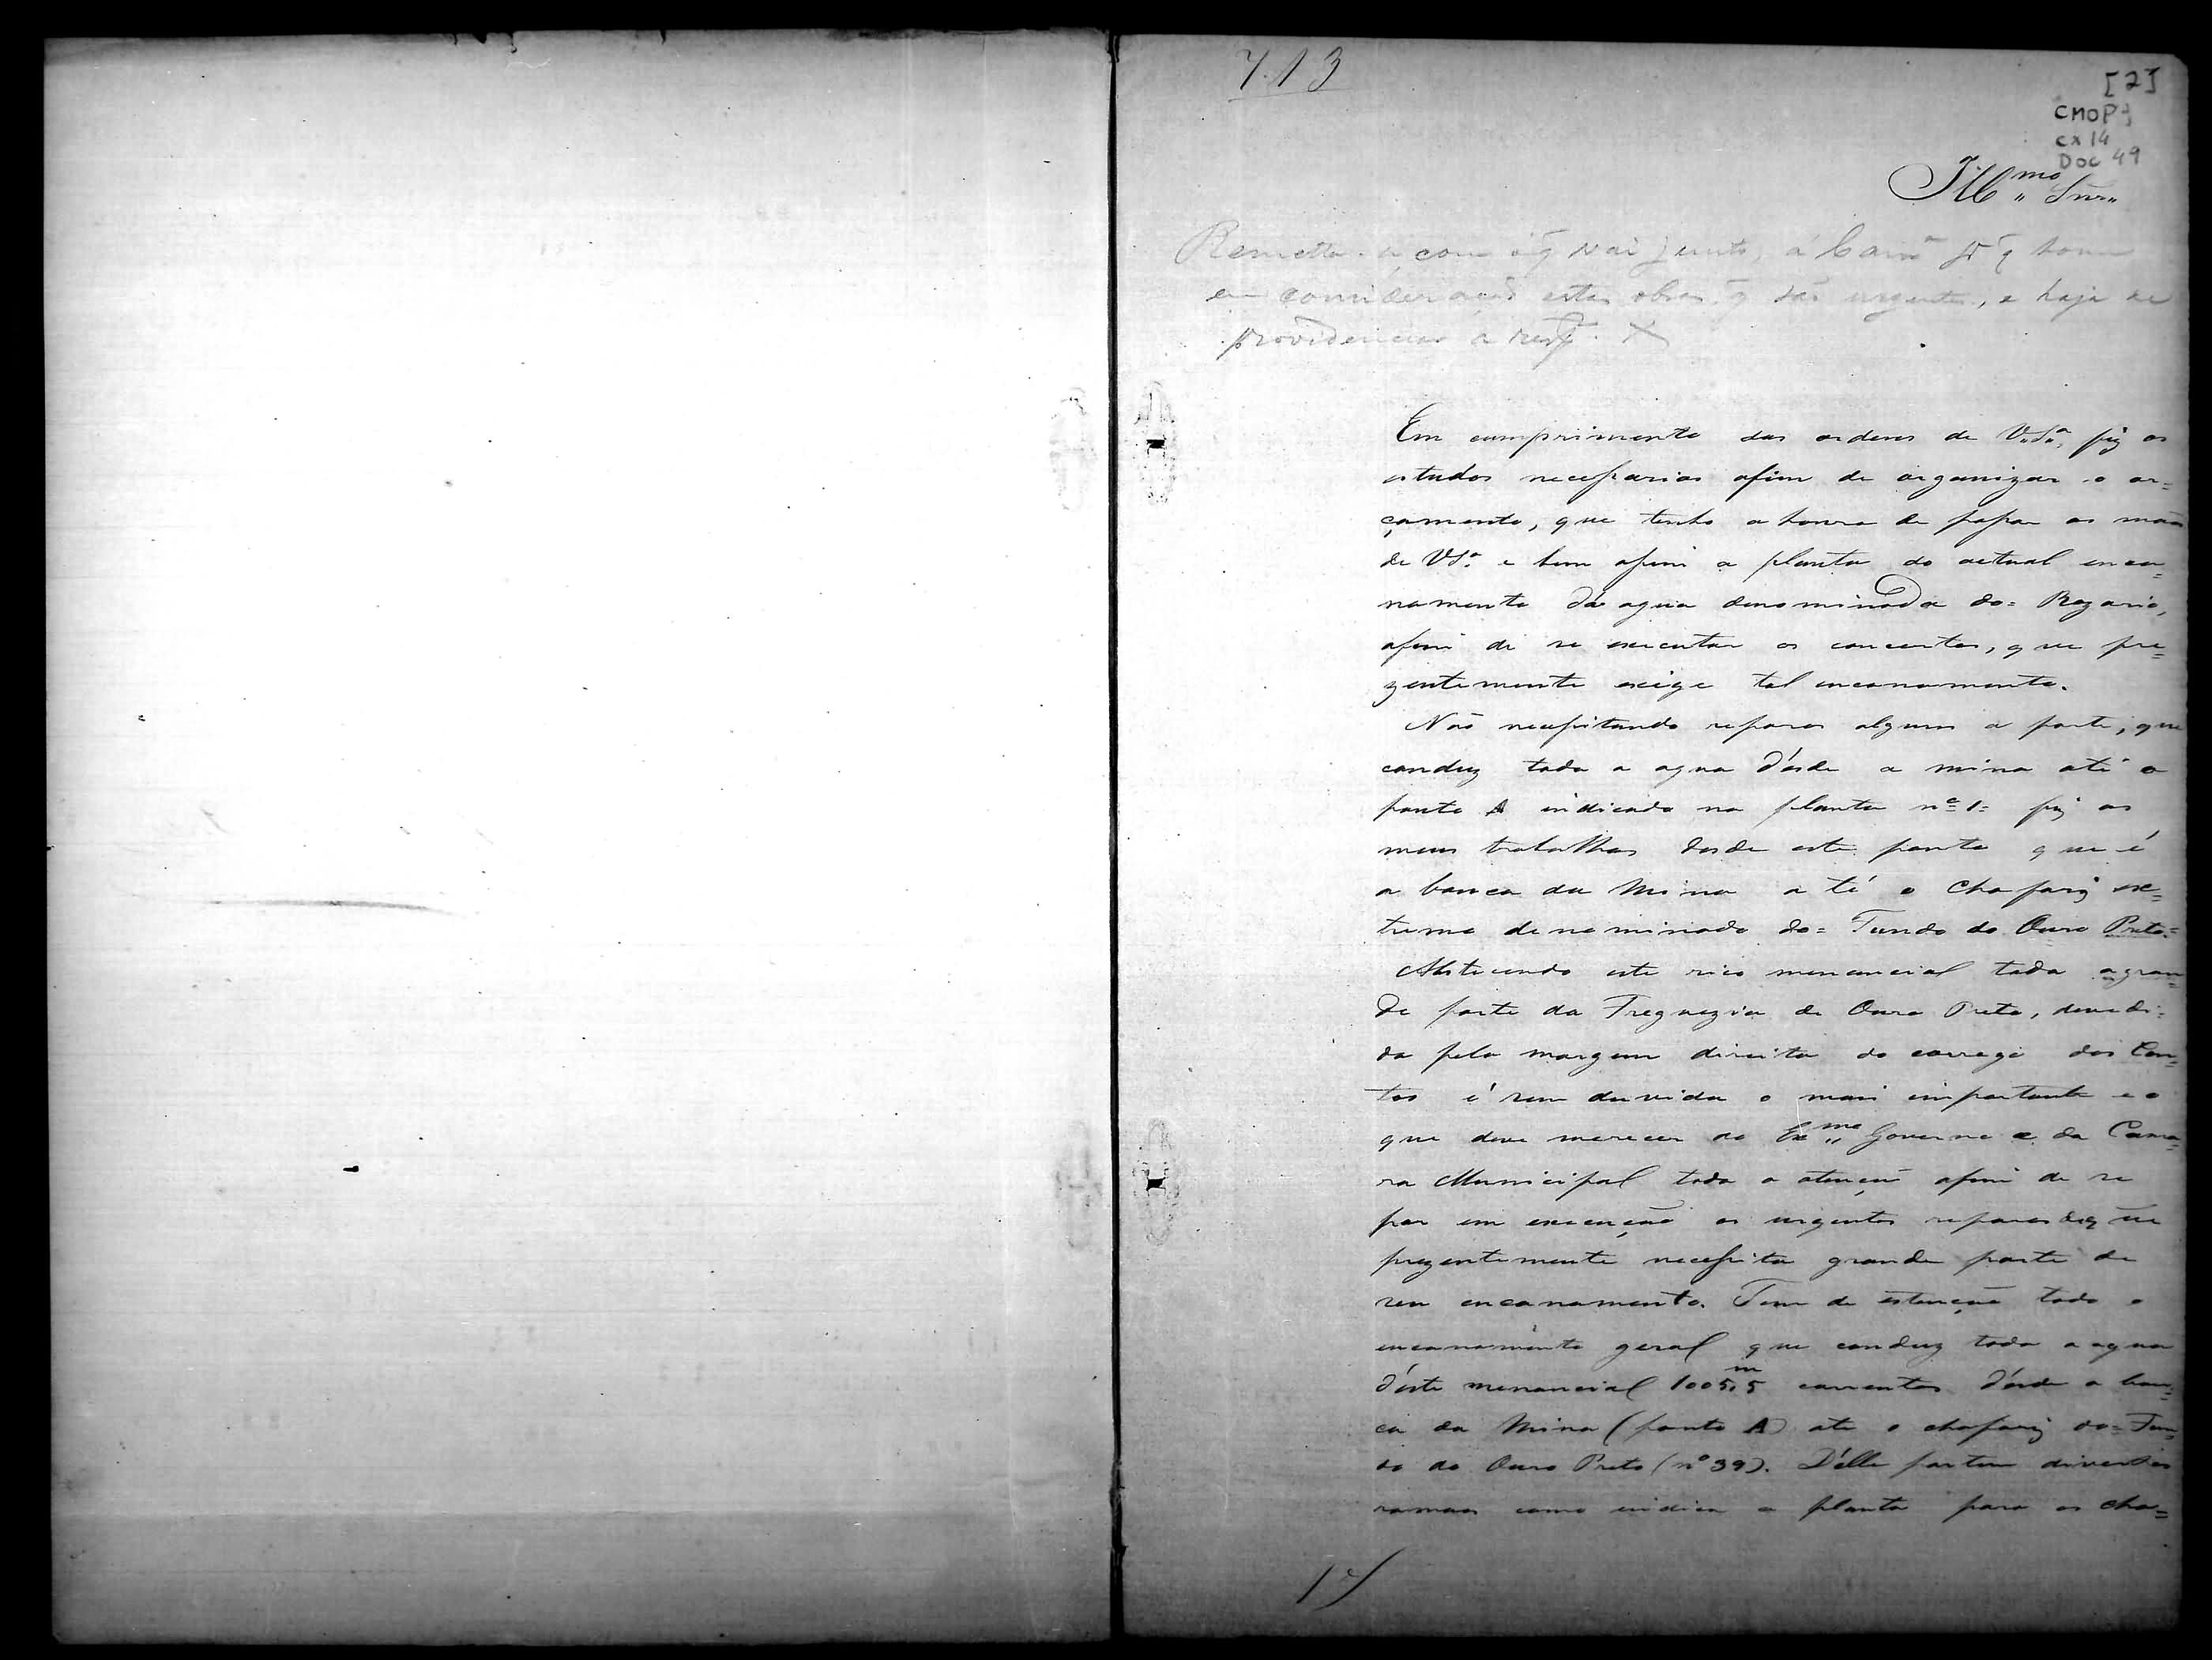 713
[2]
CMOP
cx 14
Doc 49
Illmo Snr
Remetta-se com o q̃ vai junto, á Camª pª q̃ tome
em consideração estas obras, q̃ são urgentes, e haja de
providenciar a respº.
Em cumprimento das ordens de V.Sª, fiz os
estudos necessarios afim de organizar o or=
çamento, que tenho a honra de passar as mãos
de VSª e bem assim a planta do actual enca=
namento da agua denominada do= Rozario,
afim de se executar os concertos, que pre=
zentemente exige tal encanamento.
Não necessitando reparos algum a parte, que
conduz toda a agua dásde a mina até o
ponto A indicado na planta nº 1= fiz os
meus trabalhos desde este ponto que é
a bouca da Mina a té o Chafariz ex=
tremo denominado do= Fundo do Ouro Preto=
Abstecendo este rico menancial toda a gran=
de parte da Freguezia de Ouro Preto, devedi=
da pela margem direita do corrego dos Con=
tos é sem duvida o mais importante e o
que deve merecer do Exmo Governo e da Cama=
ra Municipal toda a atenção afim de se
por em execução os urgentes reparos de que
prezentemente necessita grande parte de
seu encanamento. Tem de estenção todo o
encanamento geral que conduz toda a agua
d'éste menancial 1005,m5 correntes désde a bou=
ca da Mina (ponto A) ate o chafariz do= Fun=
do do Ouro Preto (nº 39). D'élle partem diversos
ramaes como indica a planta para os cha=